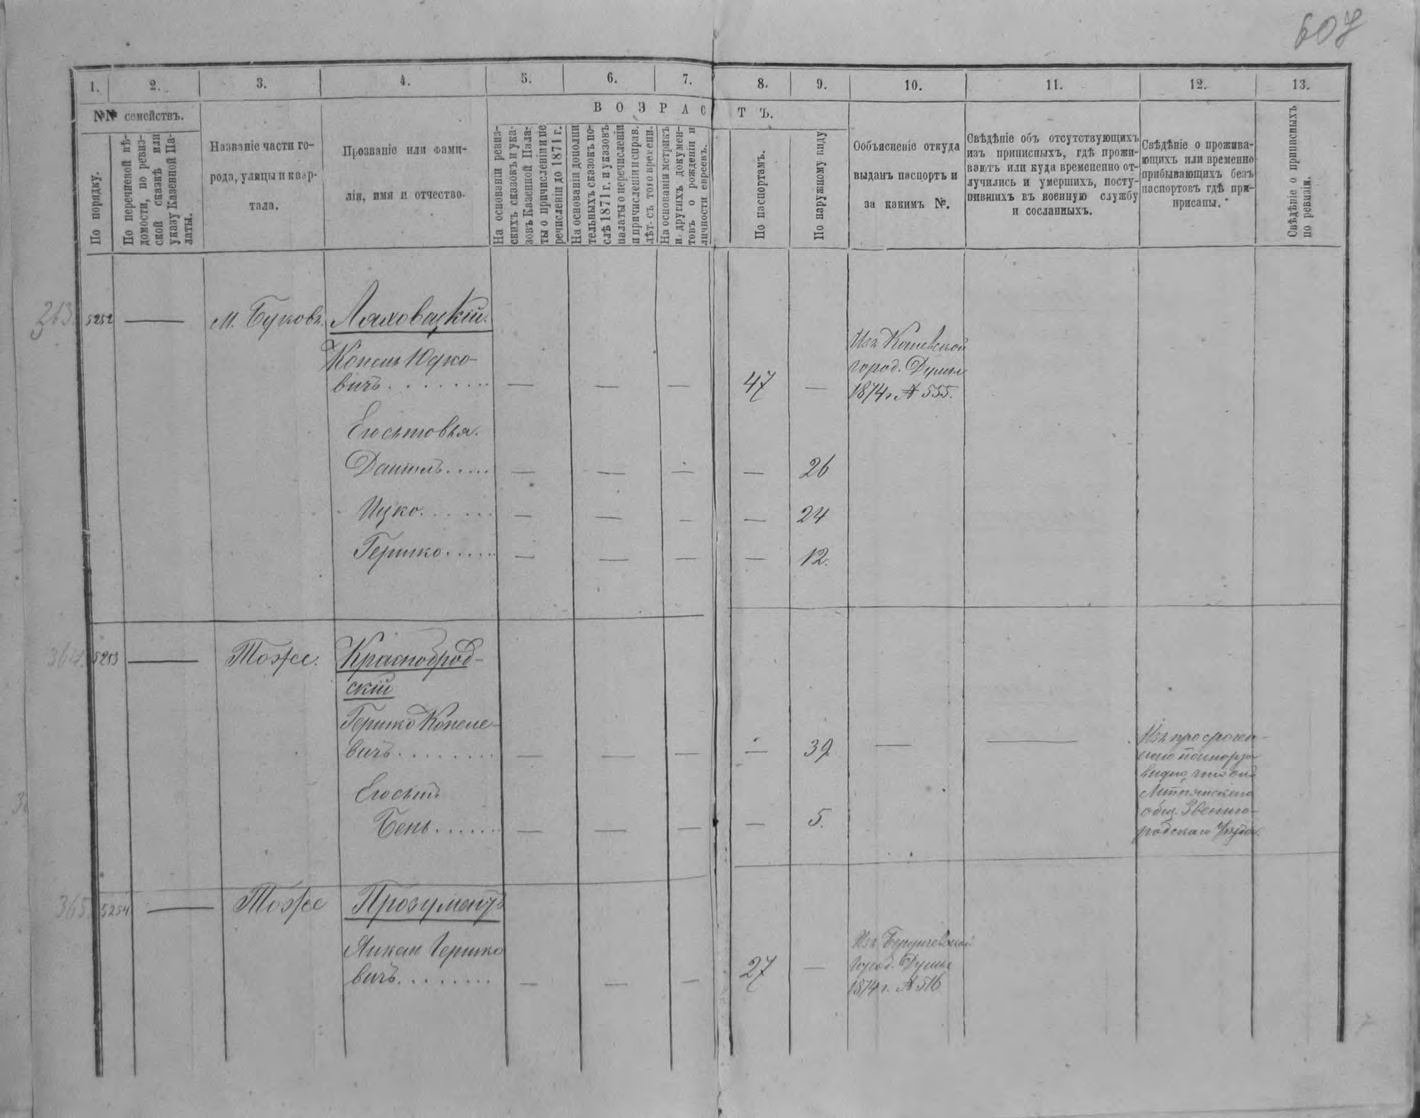 607
1.
2.
3.
4.
5.
6.
7.
8.
9.
10.
11.
12.
13.
№№ семействъ.
По порядку.
По перечневой вѣ-
домости, по ревиз-
ской сказкѣ или
указу Казенной Па-
латы.
Названіе части го-
рода, улицы и квар-
тала.
Прозваніе или фами-
лія, имя и отчество.
ВОЗРАСТЪ.
На основаніи ревиз-
скихъ сказокъ и ука-
зовъ Казенной Пала-
ты о причисленіи и пе
речисленіи до 1871 г.
На основаніи дополни
тельныхъ сказокъ по-
слѣ 1871 г. и указовъ
палаты о перечисленіи
и причисленіи и справ.
лѣт. съ того времени.
На основаніи метрикъ
и другихъ докумен-
товъ о рожденіи и
личности евреевъ.
По паспортамъ.
По наружному виду
Объясненіе откуда
выданъ паспортъ и
за какимъ №.
Свѣдѣніе объ отсутствующихъ
изъ приписныхъ, гдѣ прожи-
ваютъ или куда временено от-
лучились и умершихъ, посту-
пившихъ въ военную службу
и сосланныхъ.
Свѣдѣніе о прожива-
ющихъ или временно
прибывающихъ безъ
паспортовъ гдѣ при-
писаны.
Свѣдѣніе о приписныхъ
по ревизіи.
363. 5252 — м. Буковъ. Ляховацкій.
Копель Юдко-
вичъ . . . . . . . — — — 47 —
Изъ Кіевской
город. Думы
1874 г. № 555.
Его сыновья.
Даниль . . . . . — — — — 26
Ицко . . . . . . — — — — 24
Гершко . . . . . — — — — 12.
364. 5253 — Тоже. Красноброд-
скій
Гершко Копеле-
вичъ . . . . . . . — — — — 39 — —
Изъ просрочен-
наго паспорта
видно, что онъ
общ. Звениго-
родскаго Уѣзда.
Его сынъ
Бень . . . . . . — — — — 5.
365. 5254 — Тоже Прозументъ
Янкель Гершко
вичъ . . . . . . . — — — 27 —
Изъ Бердичевской
город. Думы
1874 г. № 516